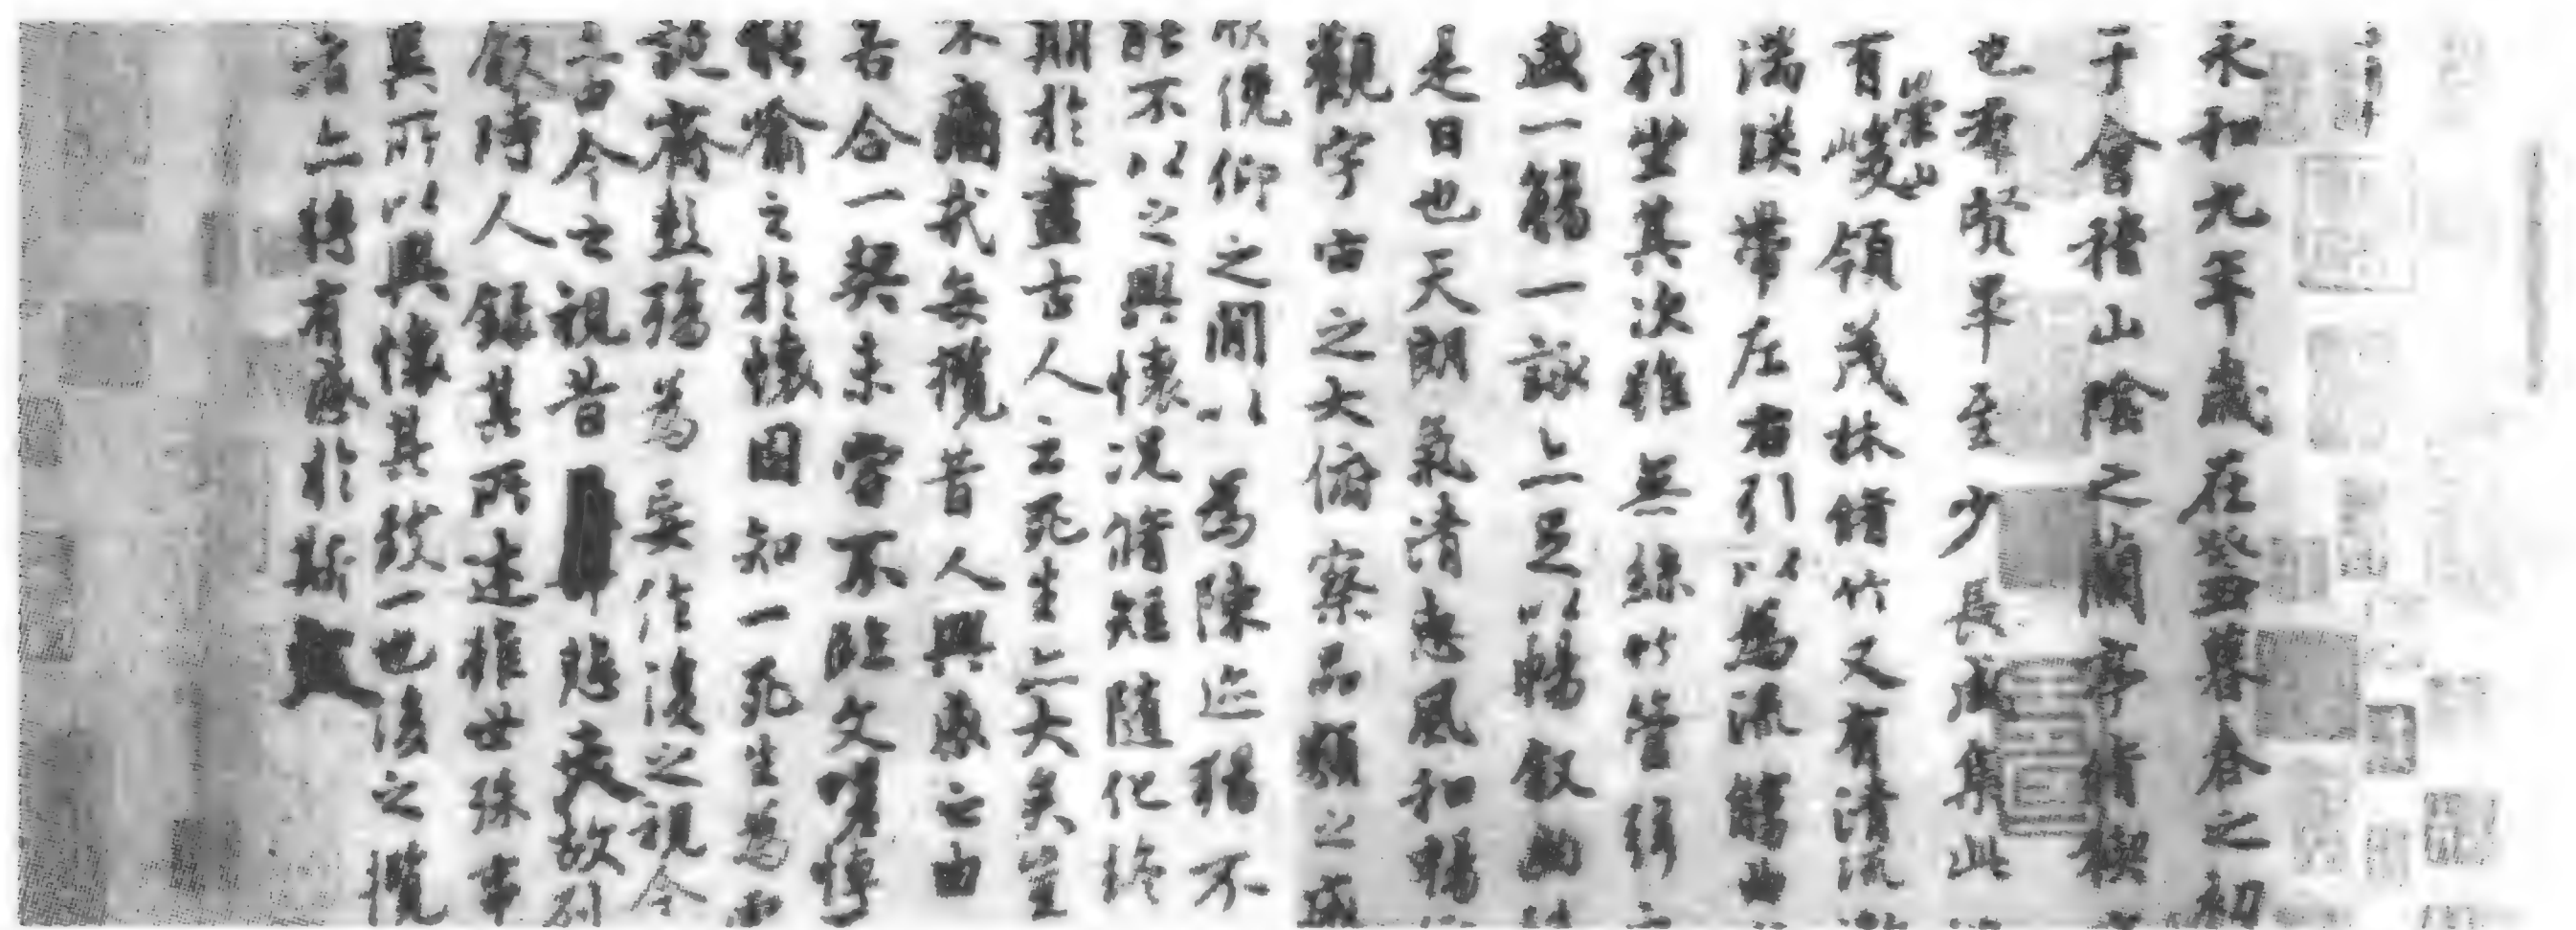 永和九年歲在癸丑暮春之初
于會稽山陰之蘭亭脩稧
也羣賢畢至少長咸集此
有崇山峻領茂林脩竹又有清流
湍暎帶左右引以為流觴曲
列坐其次雖無絲竹管弦
盛一觴一詠亦足以暢敘幽
是日也天朗氣清惠風和暢
觀宇宙之大俯察品類之盛
欣俛仰之間以為陳迹猶不
能不以之興懷況脩短隨化終
期於盡古人云死生亦大矣豈
不痛哉每攬昔人興感之由
若合一契未嘗不臨文嗟悼
能喻之於懷固知一死生為虛
誕齊彭殤為妄作後之視今
亦由今之視昔悲夫故列
敘時人錄其所述雖世殊事
異所以興懷其致一也後之攬
者亦將有感於斯文